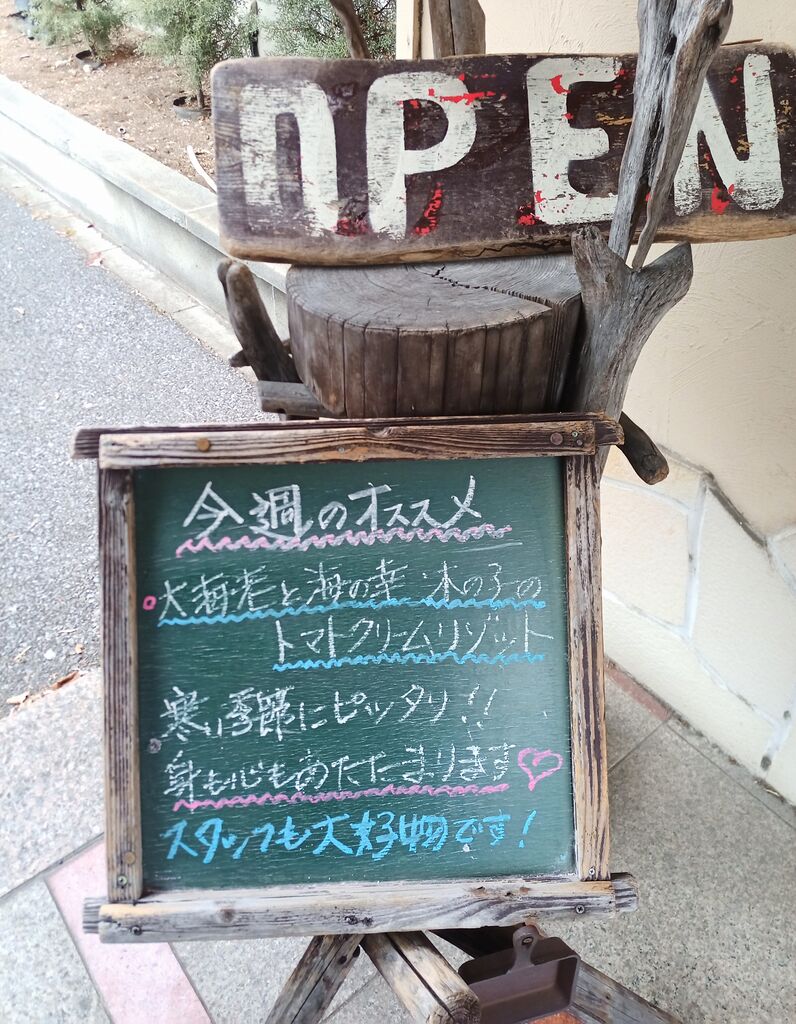 OPEN
今週のオススメ
大海老と海の幸 木の子の
トマトクリームリゾット
寒い季節にピッタリ!!
身も心もあたたまります♡
スタッフも大好物です!